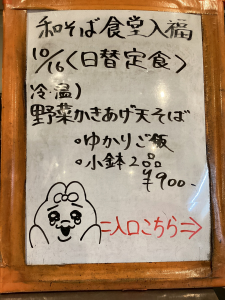 和そば食堂入福
10/16〈日替定食〉
冷・温)
野菜かきあげ天そば
。ゆかりご飯
。小鉢2品
¥900-
=入口こちら⇒